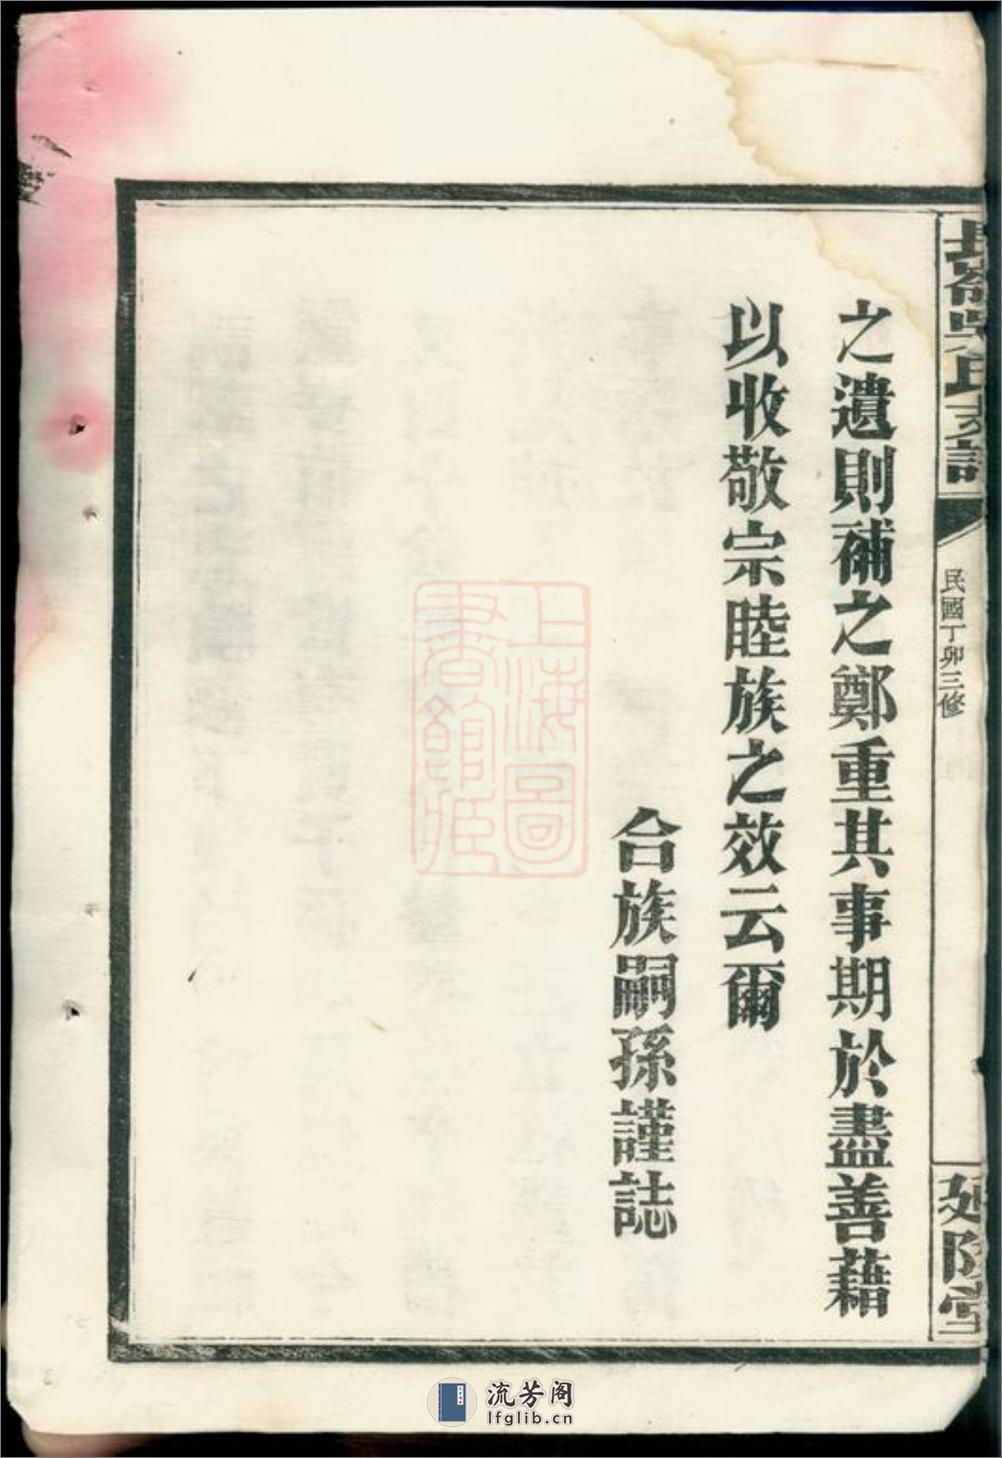 長嶺吳氏支譜
民國丁卯三修
延陵堂
之遺則補之鄭重其事期於盡善藉
以收敬宗睦族之效云爾
合族嗣孫謹誌
上海圖
書館藏
流芳阁
lfglib.cn